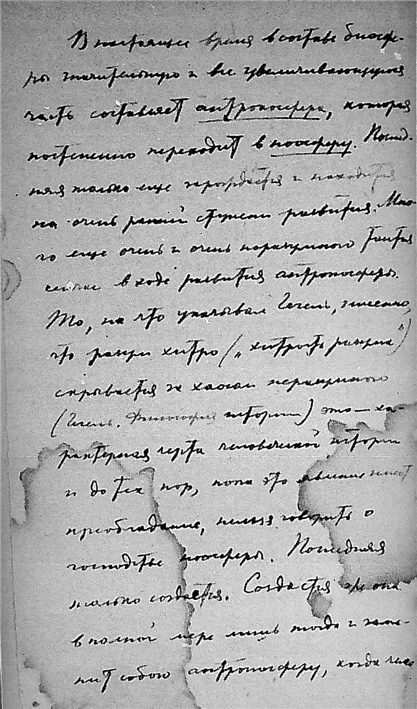 В настоящее время в составе биосфе-
ры значительную и все увеличивающуюся
часть составляет антропосфера, которая
постепенно переходит в ноосферу. Послед-
няя только еще зарождается и находится
на очень ранней ступени развития. Мно-
го еще очень и очень неразумного таится
сейчас в ходе развития антропосферы.
То, на что указывал Гегель, именно,
что разум хитро („хитрость разума“)
скрывается за хаосом неразумного
(Гегель. Философия истории) это — ха-
рактерная черта человеческой истории
и до тех пор, пока это явление имеет
преобладание, нельзя говорить о
господстве ноосферы. Последняя
только создается. Создастся же она
в полной мере лишь тогда и заме-
нит собою антропосферу, когда